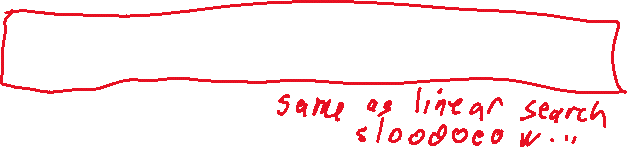 same as linear search
sloooooow...